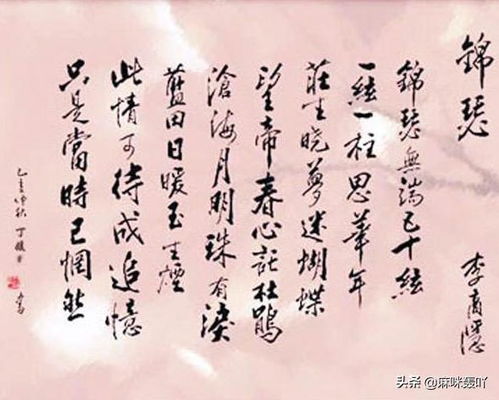 錦瑟
李商隱
錦瑟無端五十絃
一絃一柱思華年
莊生晓夢迷蝴蝶
望帝春心託杜鵑
滄海月明珠有淚
藍田日暖玉生煙
此情可待成追憶
只是當時已惘然
己亥仲秋 丁 書
头条 @麻咪轰吖